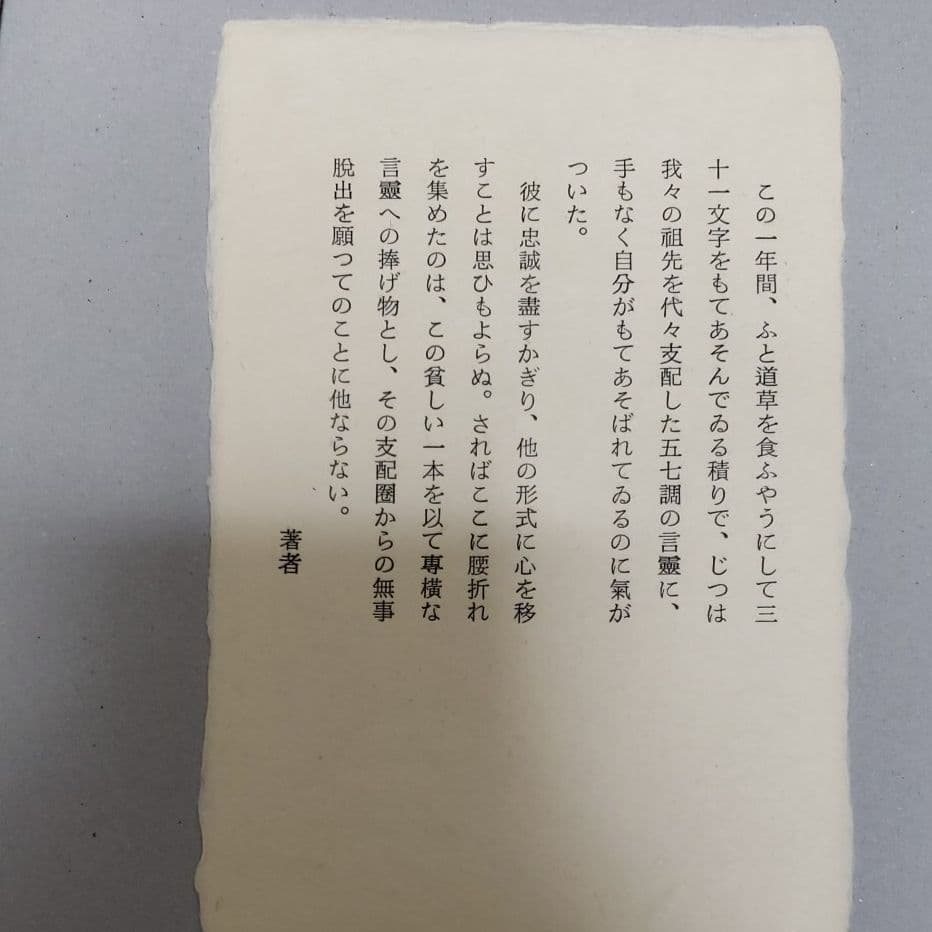 この一年間、ふと道草を食ふやうにして三
十一文字をもてあそんでゐる積りで、じつは
我々の祖先を代々支配した五七調の言靈に、
手もなく自分がもてあそばれてゐるのに氣が
ついた。
彼に忠誠を盡すかぎり、他の形式に心を移
すことは思ひもよらぬ。さればここに腰折れ
を集めたのは、この貧しい一本を以て専横な
言靈への捧げ物とし、その支配圏からの無事
脫出を願つてのことに他ならない。
著者